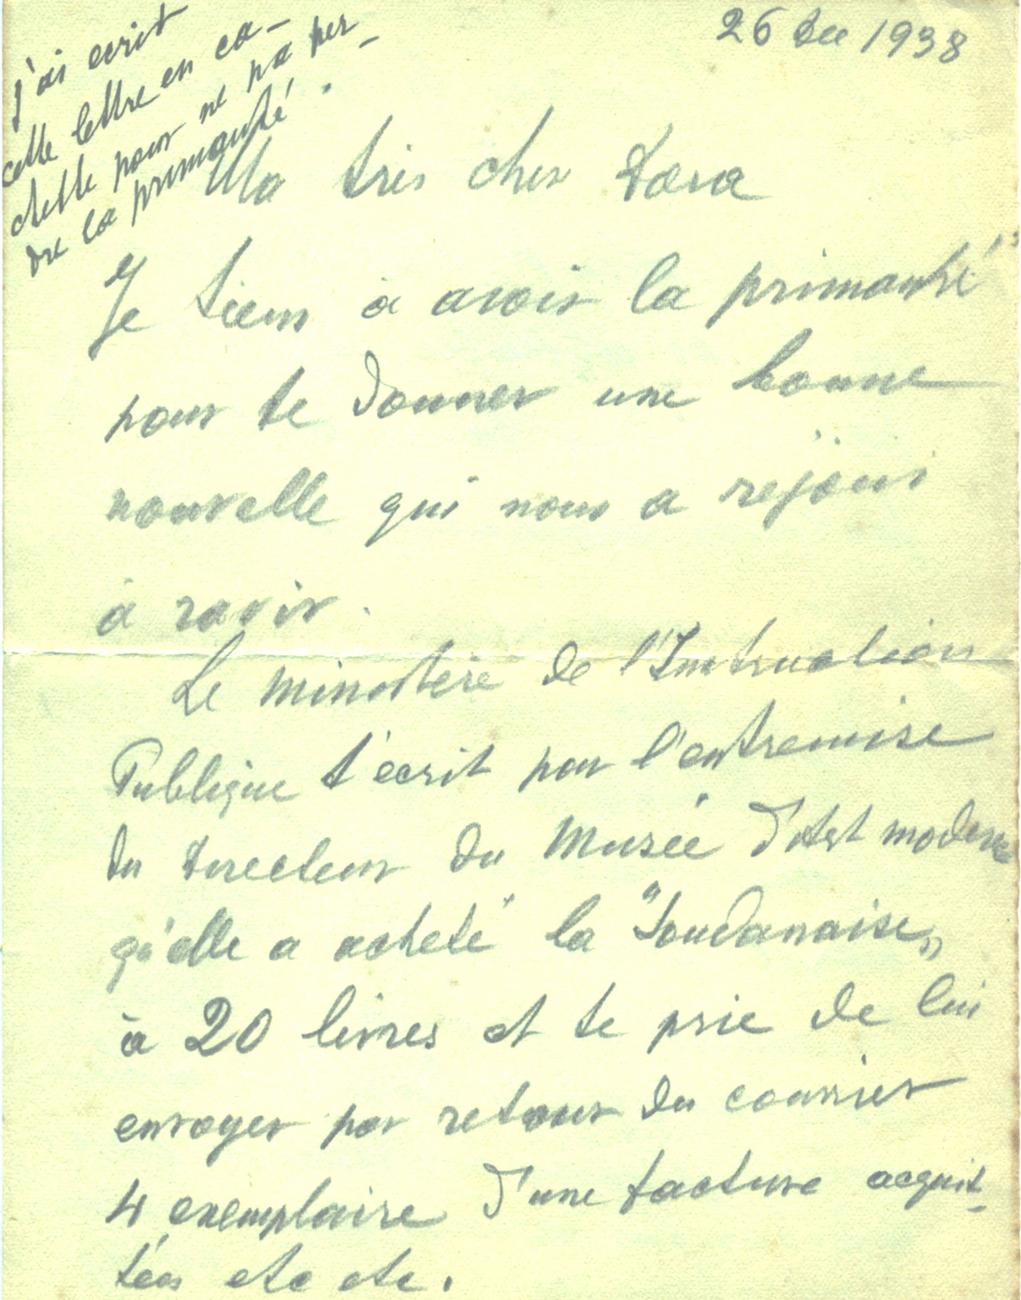 26 Dec 1938
J'ai ecrit
cette lettre en ca-
chette pour ne pa per-
dre la primauté.
Ma très cher Dora
Je tiens à avoir la primauté
pour te donner une bonne
nouvelle qui nous a rejoui
à ravir.
Le ministère de l'Instruction
Publique t'écrit par l'entremise
du Directeur du Musée d'Art moderne
qu'elle a acheté la "Soudanaise„
à 20 livres et te prie de lui
envoyer par retour du courrier
4 exemplaire d'une facture acquit-
tées etc etc.